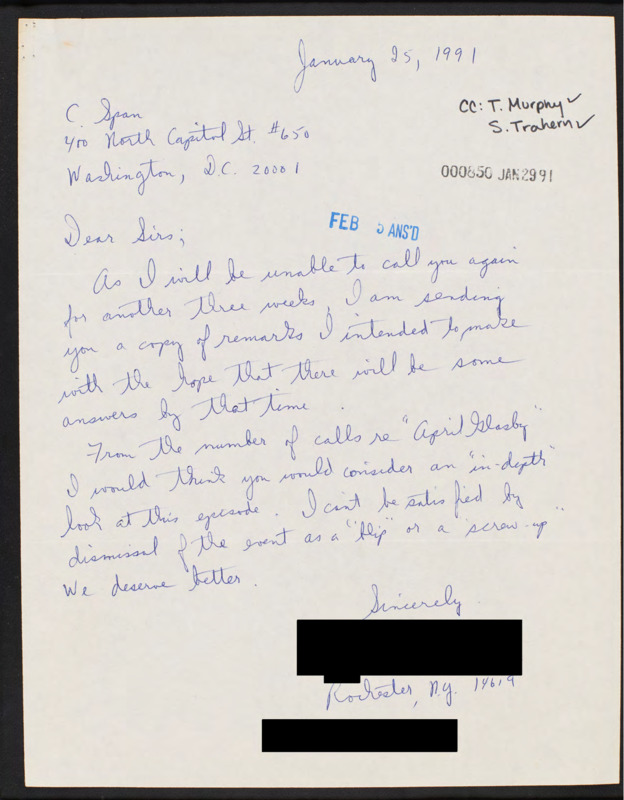 January 25, 1991
CC: T. Murphy ✓
S. Trahern ✓
000850 JAN2991
C. Span
400 North Capitol St. #650
Washington, D.C. 20001
FEB 5 ANS'D
Dear Sirs;
As I will be unable to call you again
for another three weeks, I am sending
you a copy of remarks I intended to make
with the hope that there will be some
answers by that time.
From the number of calls re "April Glasby"
I would think you would consider an "in-depth"
look at this episode. I can't be satisfied by
dismissal of the event as a "blip" or a "screw-up"
We deserve better.
Sincerely
Rochester, N.Y. 14619